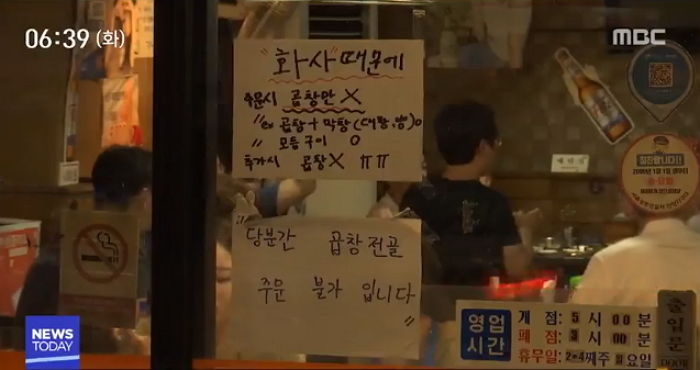 06:39 (화)
MBC
"화사" 때문에
주문시 곱창만 X
"ex 곱창 + 막창 (대창,양) O
" 모듬구이 O
추가시 곱창 X ㅠㅠ
"당분간 곱창전골
주문 불가 입니다"
영업
시간
개 점: 5 시 00 분
폐 점: 3 시 00 분
휴무일: 2•4째주 요일
출입문
DOOR
NEWS
TODAY